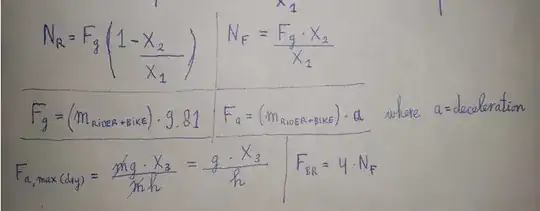 X₁
N_R = F_g (1 - X₂/X₁) N_F = F_g · X₂/X₁
F_g = (m_RIDER+BIKE) · 9.81 F_a = (m_RIDER+BIKE) · a where a = deceleration
F_a,max(dry) = mg · X₃/mh = g · X₃/h F_BR = 4 · N_F